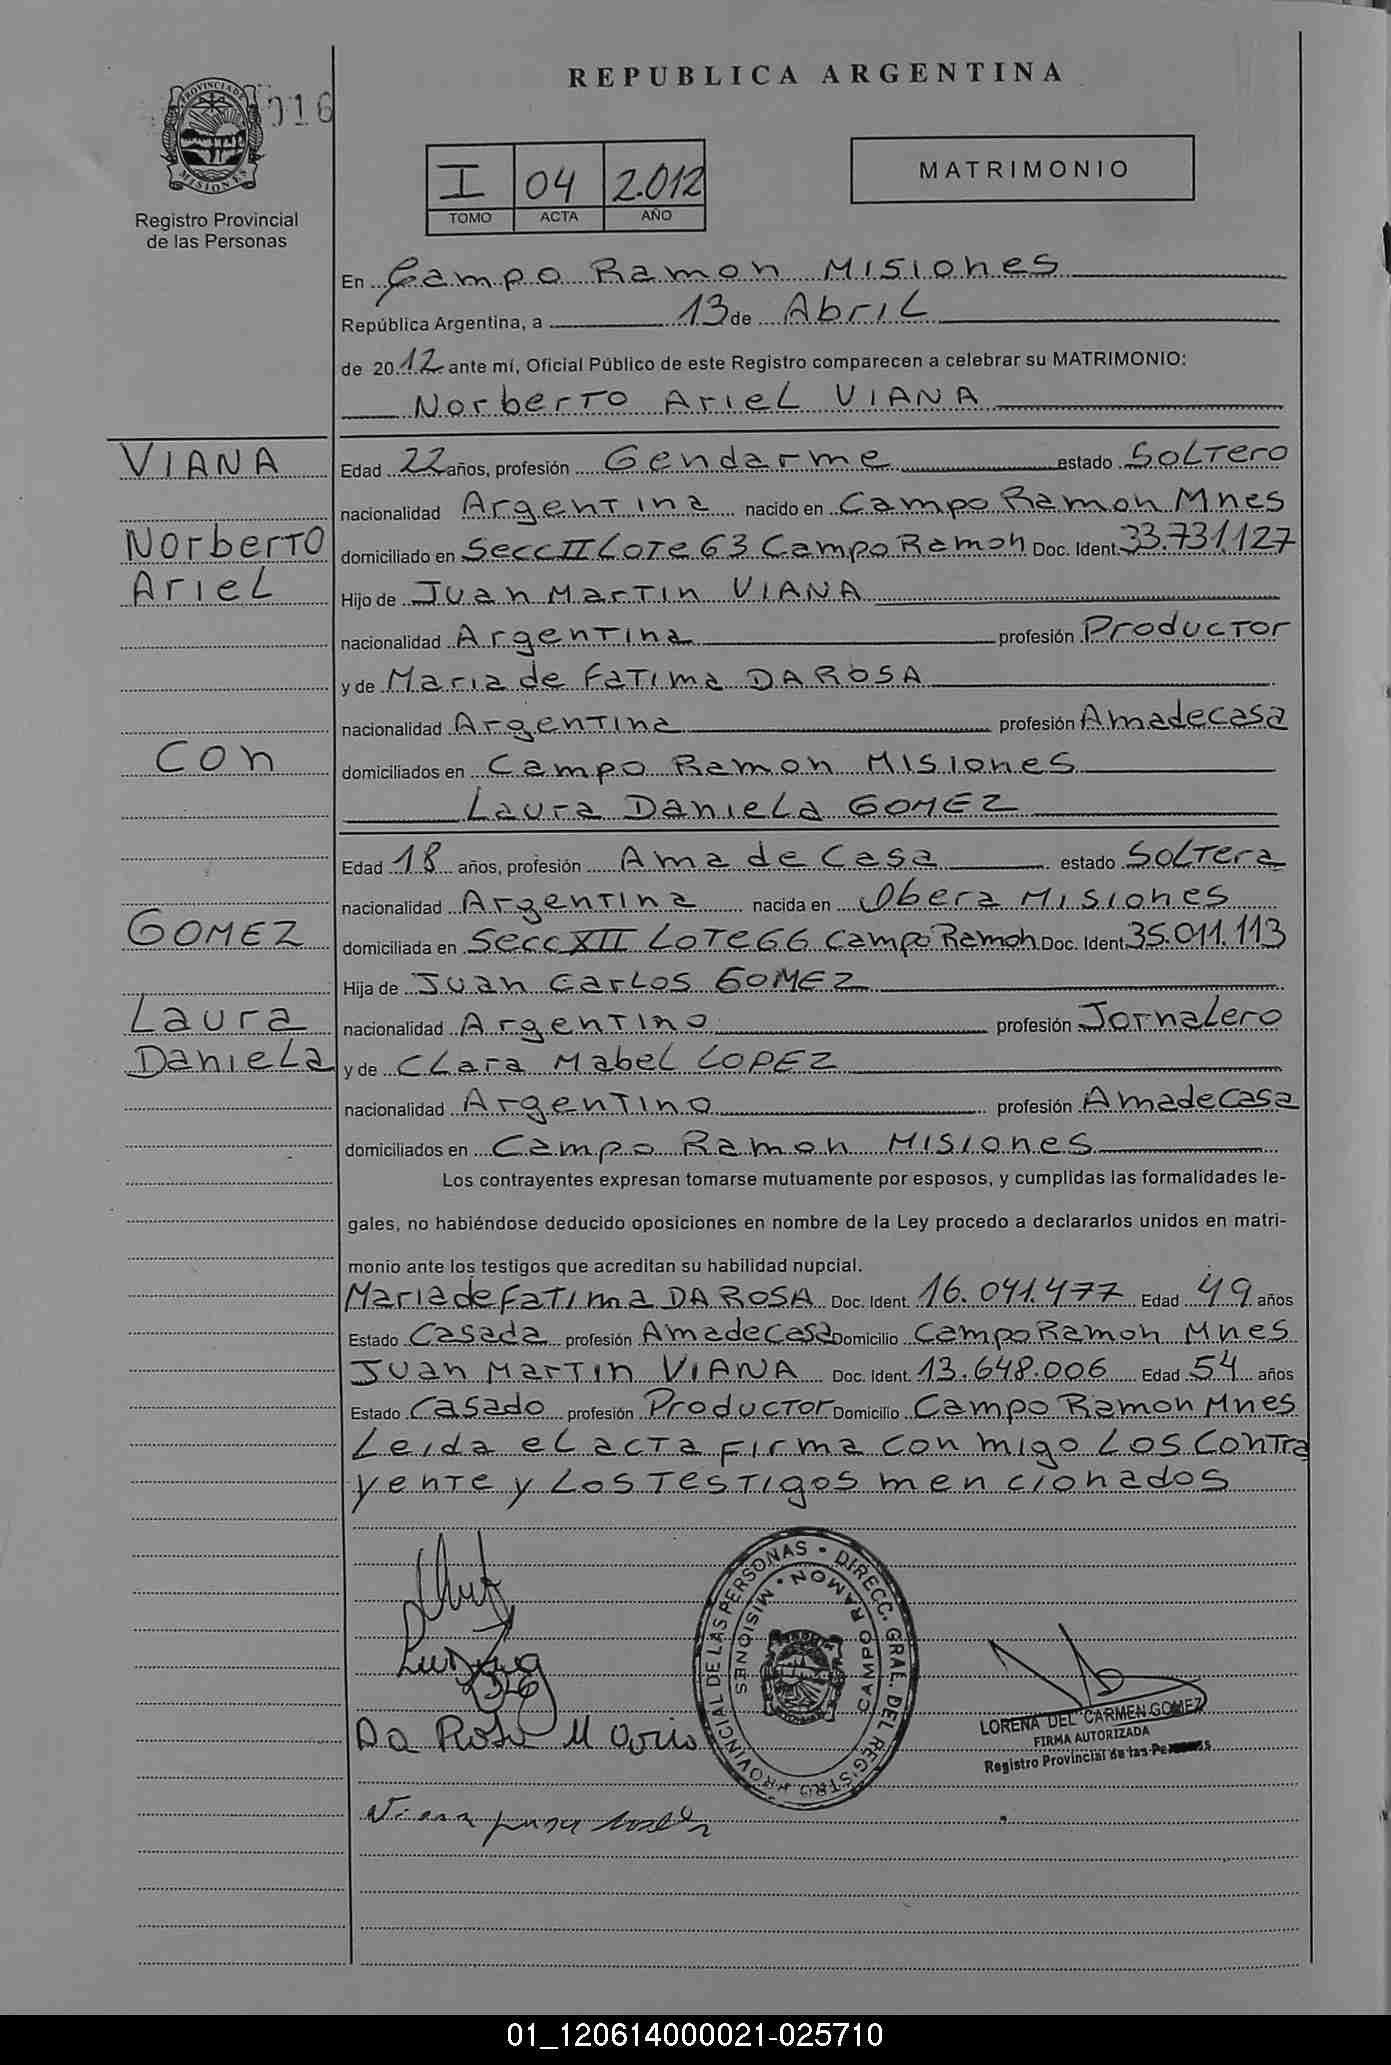 REPUBLICA ARGENTINA
PROVINCIA DE
MISIONES
016
Registro Provincial
de las Personas
I 04 2.012
TOMO ACTA AÑO
MATRIMONIO
En Campo Ramon Misiones
República Argentina, a 13 de Abril
de 2012 ante mí, Oficial Público de este Registro comparecen a celebrar su MATRIMONIO:
Norberto Ariel VIANA
VIANA
Norberto
Ariel
Con
GOMEZ
Laura
Daniela
Edad 22 años, profesión Gendarme estado Soltero
nacionalidad Argentina nacido en Campo Ramon Mnes
domiciliado en Secc II Lote 63 Campo Ramon Doc. Ident. 33.731.127
Hijo de Juan Martin VIANA
nacionalidad Argentina profesión Productor
y de Maria de Fatima DA ROSA
nacionalidad Argentina profesión Ama de casa
domiciliados en Campo Ramon Misiones
Laura Daniela GOMEZ
Edad 18 años, profesión Ama de Casa estado Soltera
nacionalidad Argentina nacida en Obera Misiones
domiciliada en Secc XII Lote 66 Campo Ramon Doc. Ident. 35.011.113
Hija de Juan Carlos GOMEZ
nacionalidad Argentino profesión Jornalero
y de Clara Mabel LOPEZ
nacionalidad Argentino profesión Ama de Casa
domiciliados en Campo Ramon Misiones
Los contrayentes expresan tomarse mutuamente por esposos, y cumplidas las formalidades le-
gales, no habiéndose deducido oposiciones en nombre de la Ley procedo a declararlos unidos en matri-
monio ante los testigos que acreditan su habilidad nupcial.
Maria de Fatima DA ROSA Doc. Ident. 16.041.477 Edad 49 años
Estado Casada profesión Ama de Casa Domicilio Campo Ramon Mnes
Juan Martin VIANA Doc. Ident. 13.648.006 Edad 54 años
Estado Casado profesión Productor Domicilio Campo Ramon Mnes
Leida el acta firma con migo los contra
yente y los testigos mencionados
DIRECC. GRAL. DEL REGISTRO PROVINCIAL DE LAS PERSONAS
CAMPO RAMON • MISIONES
Da Rosa Maria
Viana
LORENA DEL CARMEN GOMEZ
FIRMA AUTORIZADA
Registro Provincial de las Personas
01_120614000021-025710